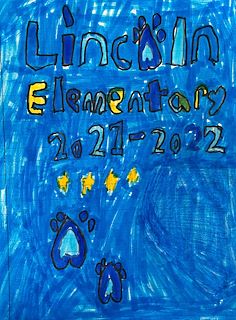 Lincoln
Elementary
2021-2022